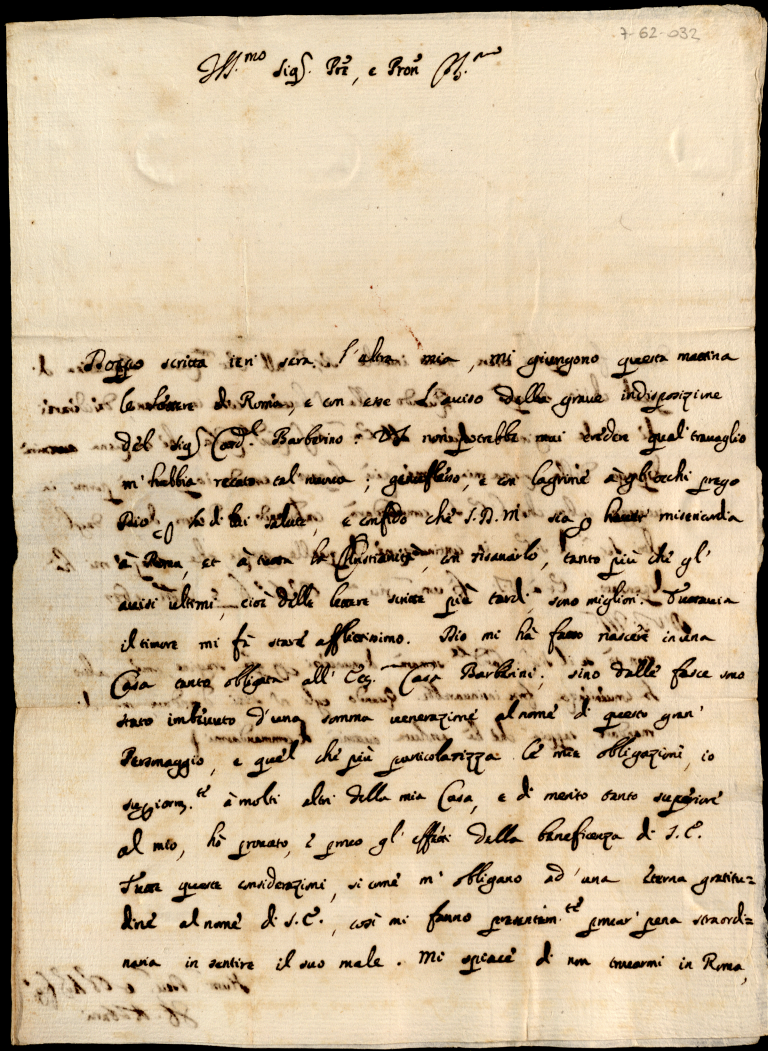 7-62-032
Ill.mo Sig.r Prē, e Pron̄ Col.mo
Doppo scritta ieri sera l'altra mia, mi giungono questa mattina
le lettere di Roma, e con esse l'aviso della grave indisposizione
del Sig.r Card.l Barberino. non potrebbe mai credere qual travaglio
m'habbia recato tal nuova; genuflesso, e con lagrime à gl'occhi prego
Dio di lui salute, e confido che S. D. M. sia havere misericordia
à Roma, et à tutta la Christianità, con risanarlo, tanto più che gl'
avvisi ultimi, cioè delle lettere scritte più tardi, sono migliori. Tuttavia
il timore mi fà stare afflittissimo. Dio mi hà fatto nascere in una
Casa tanto obligata all' Ecc.ma Casa Barberini; sino dalle fasce sono
stato imbevuto d'una somma venerazione al nome di questo gran'
Personaggio, e quel che più particolarizza le mie obligazioni, io
à molti altri della mia Casa, e di merito tanto superiore
al mio, hò provato, e provo gl'effetti della beneficenza di S. E.
Tutte queste considerazioni, si come m'obligano ad' una eterna gratitu=
dine al nome di S. E., così mi fanno presentem.te provar' pena straordi=
naria in sentire il suo male. Mi spiace di non trovarmi in Roma,